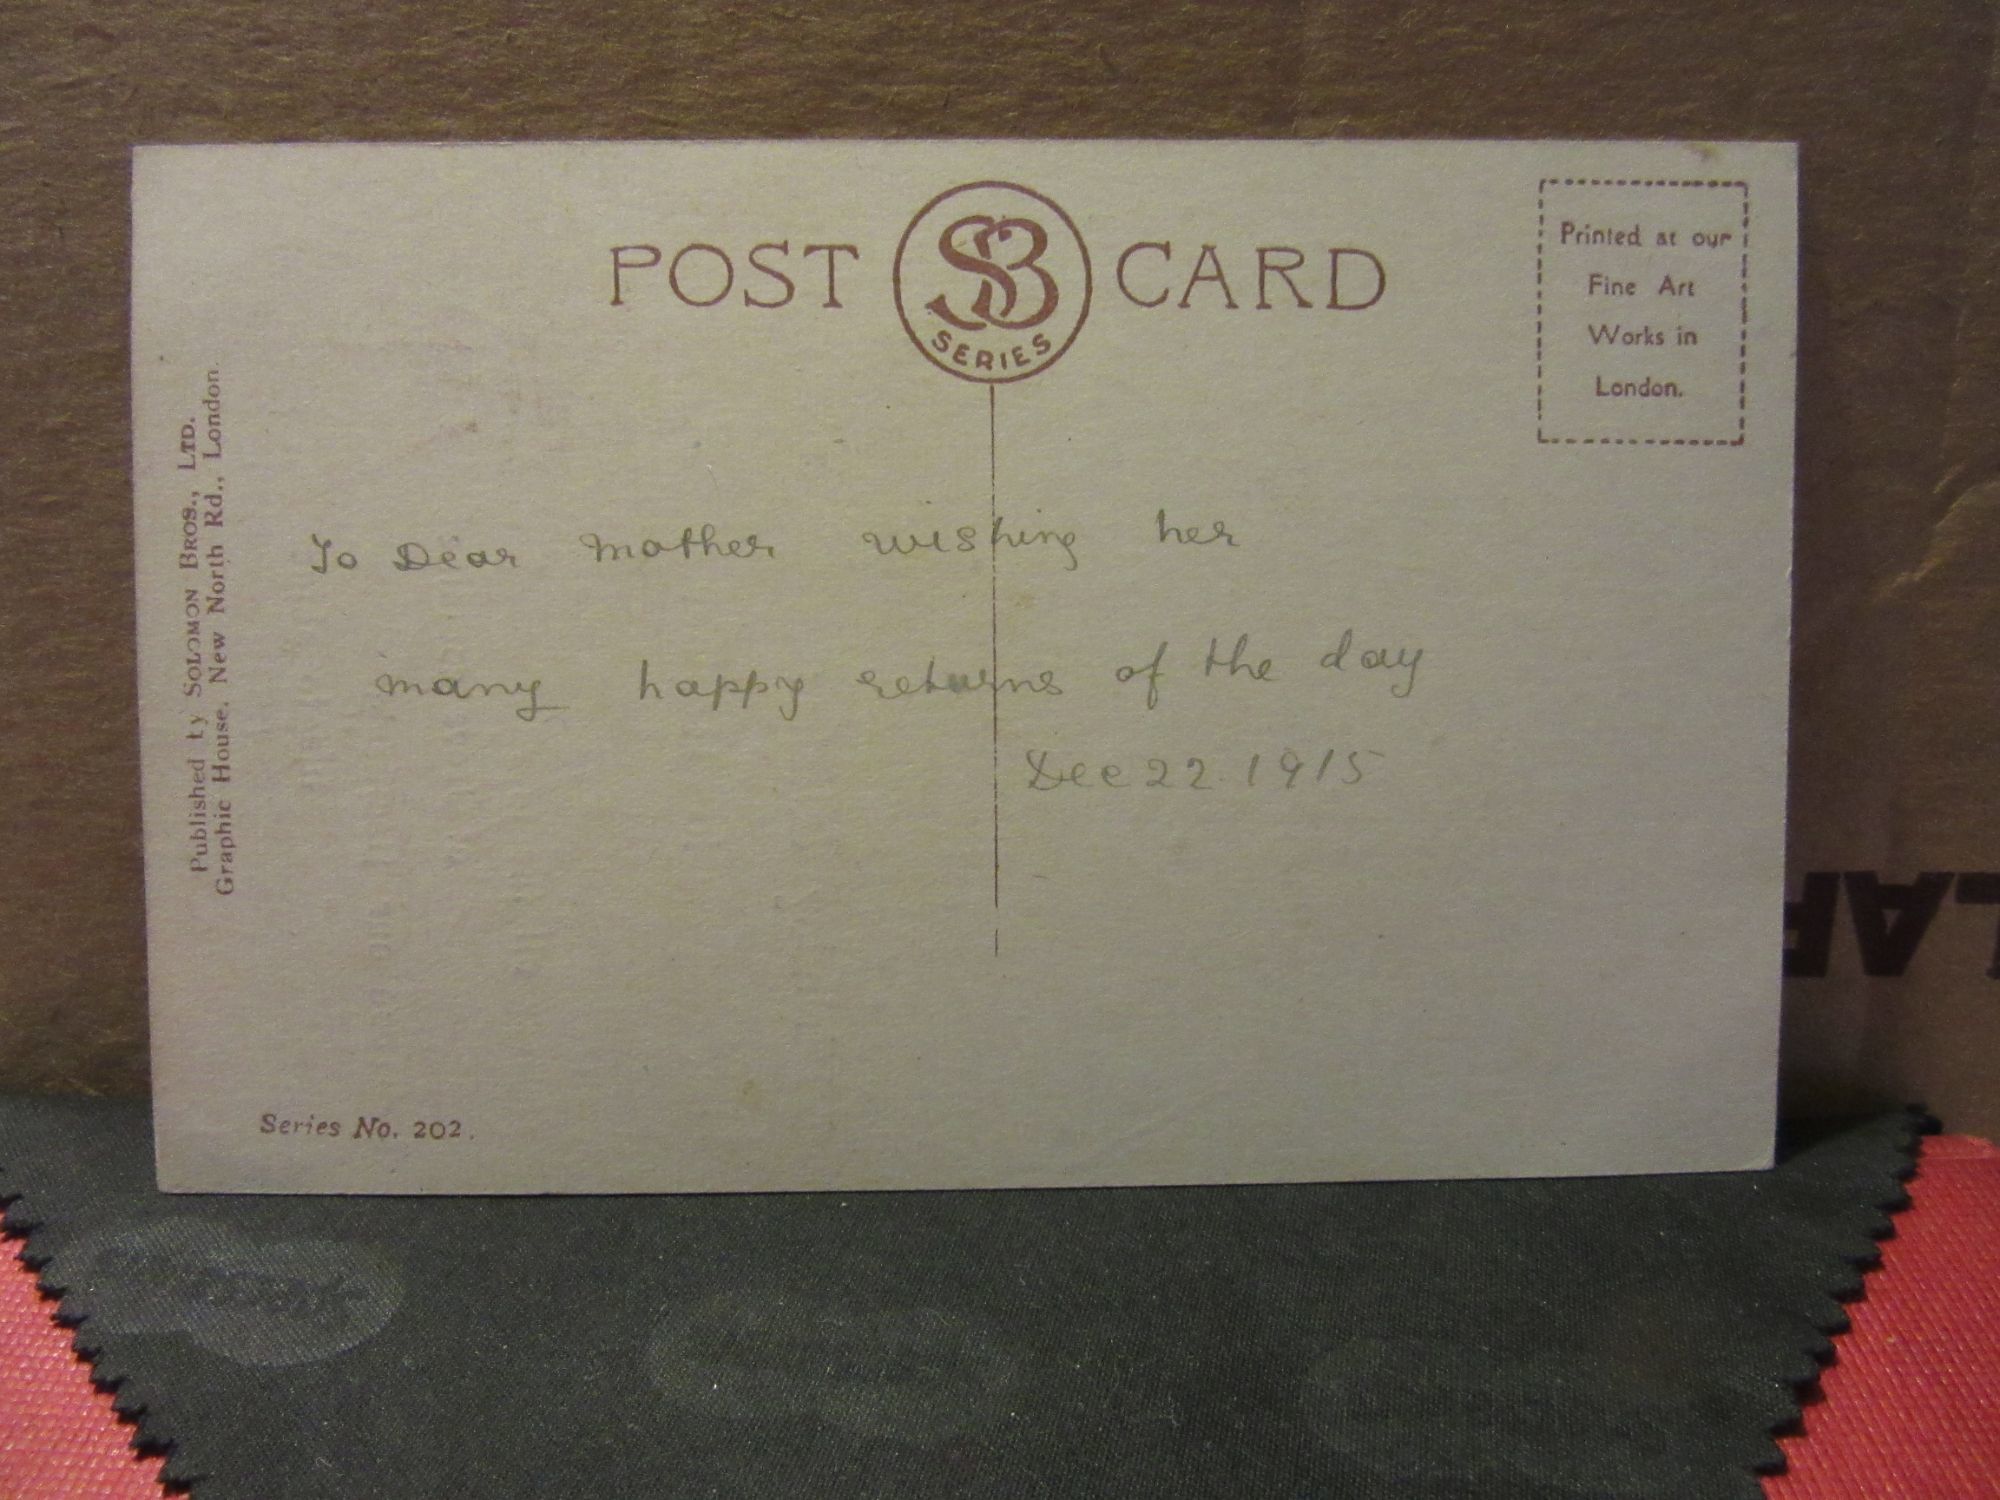 POST SB CARD
SERIES
Printed at our
Fine Art
Works in
London.
Published by SOLOMON BROS., LTD.
Graphic House, New North Rd., London.
To Dear Mother wishing her
many happy returns of the day
Dec 22 1915
Series No. 202.